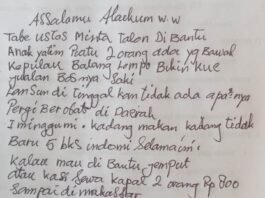 Assalamu Alaekum w.w
Tabe ustas Minta Tolon Di Bantu
Anak yatim Piatu 2 orang ada yg Bawah
Kapulau Balang Lompo Bikin kue
jualan Bosnya Saki
Lansun di tinggal kan tidak ada apa²nya
Pergi Berobat di Daerah
1 minggumi. kadang makan kadang tidak
Baru 5 bks indomi Selamaini.
kalau mau di Bantu jemput
atau kasi Sewa kapal 2 orang Rp 800
Sampai di makassar